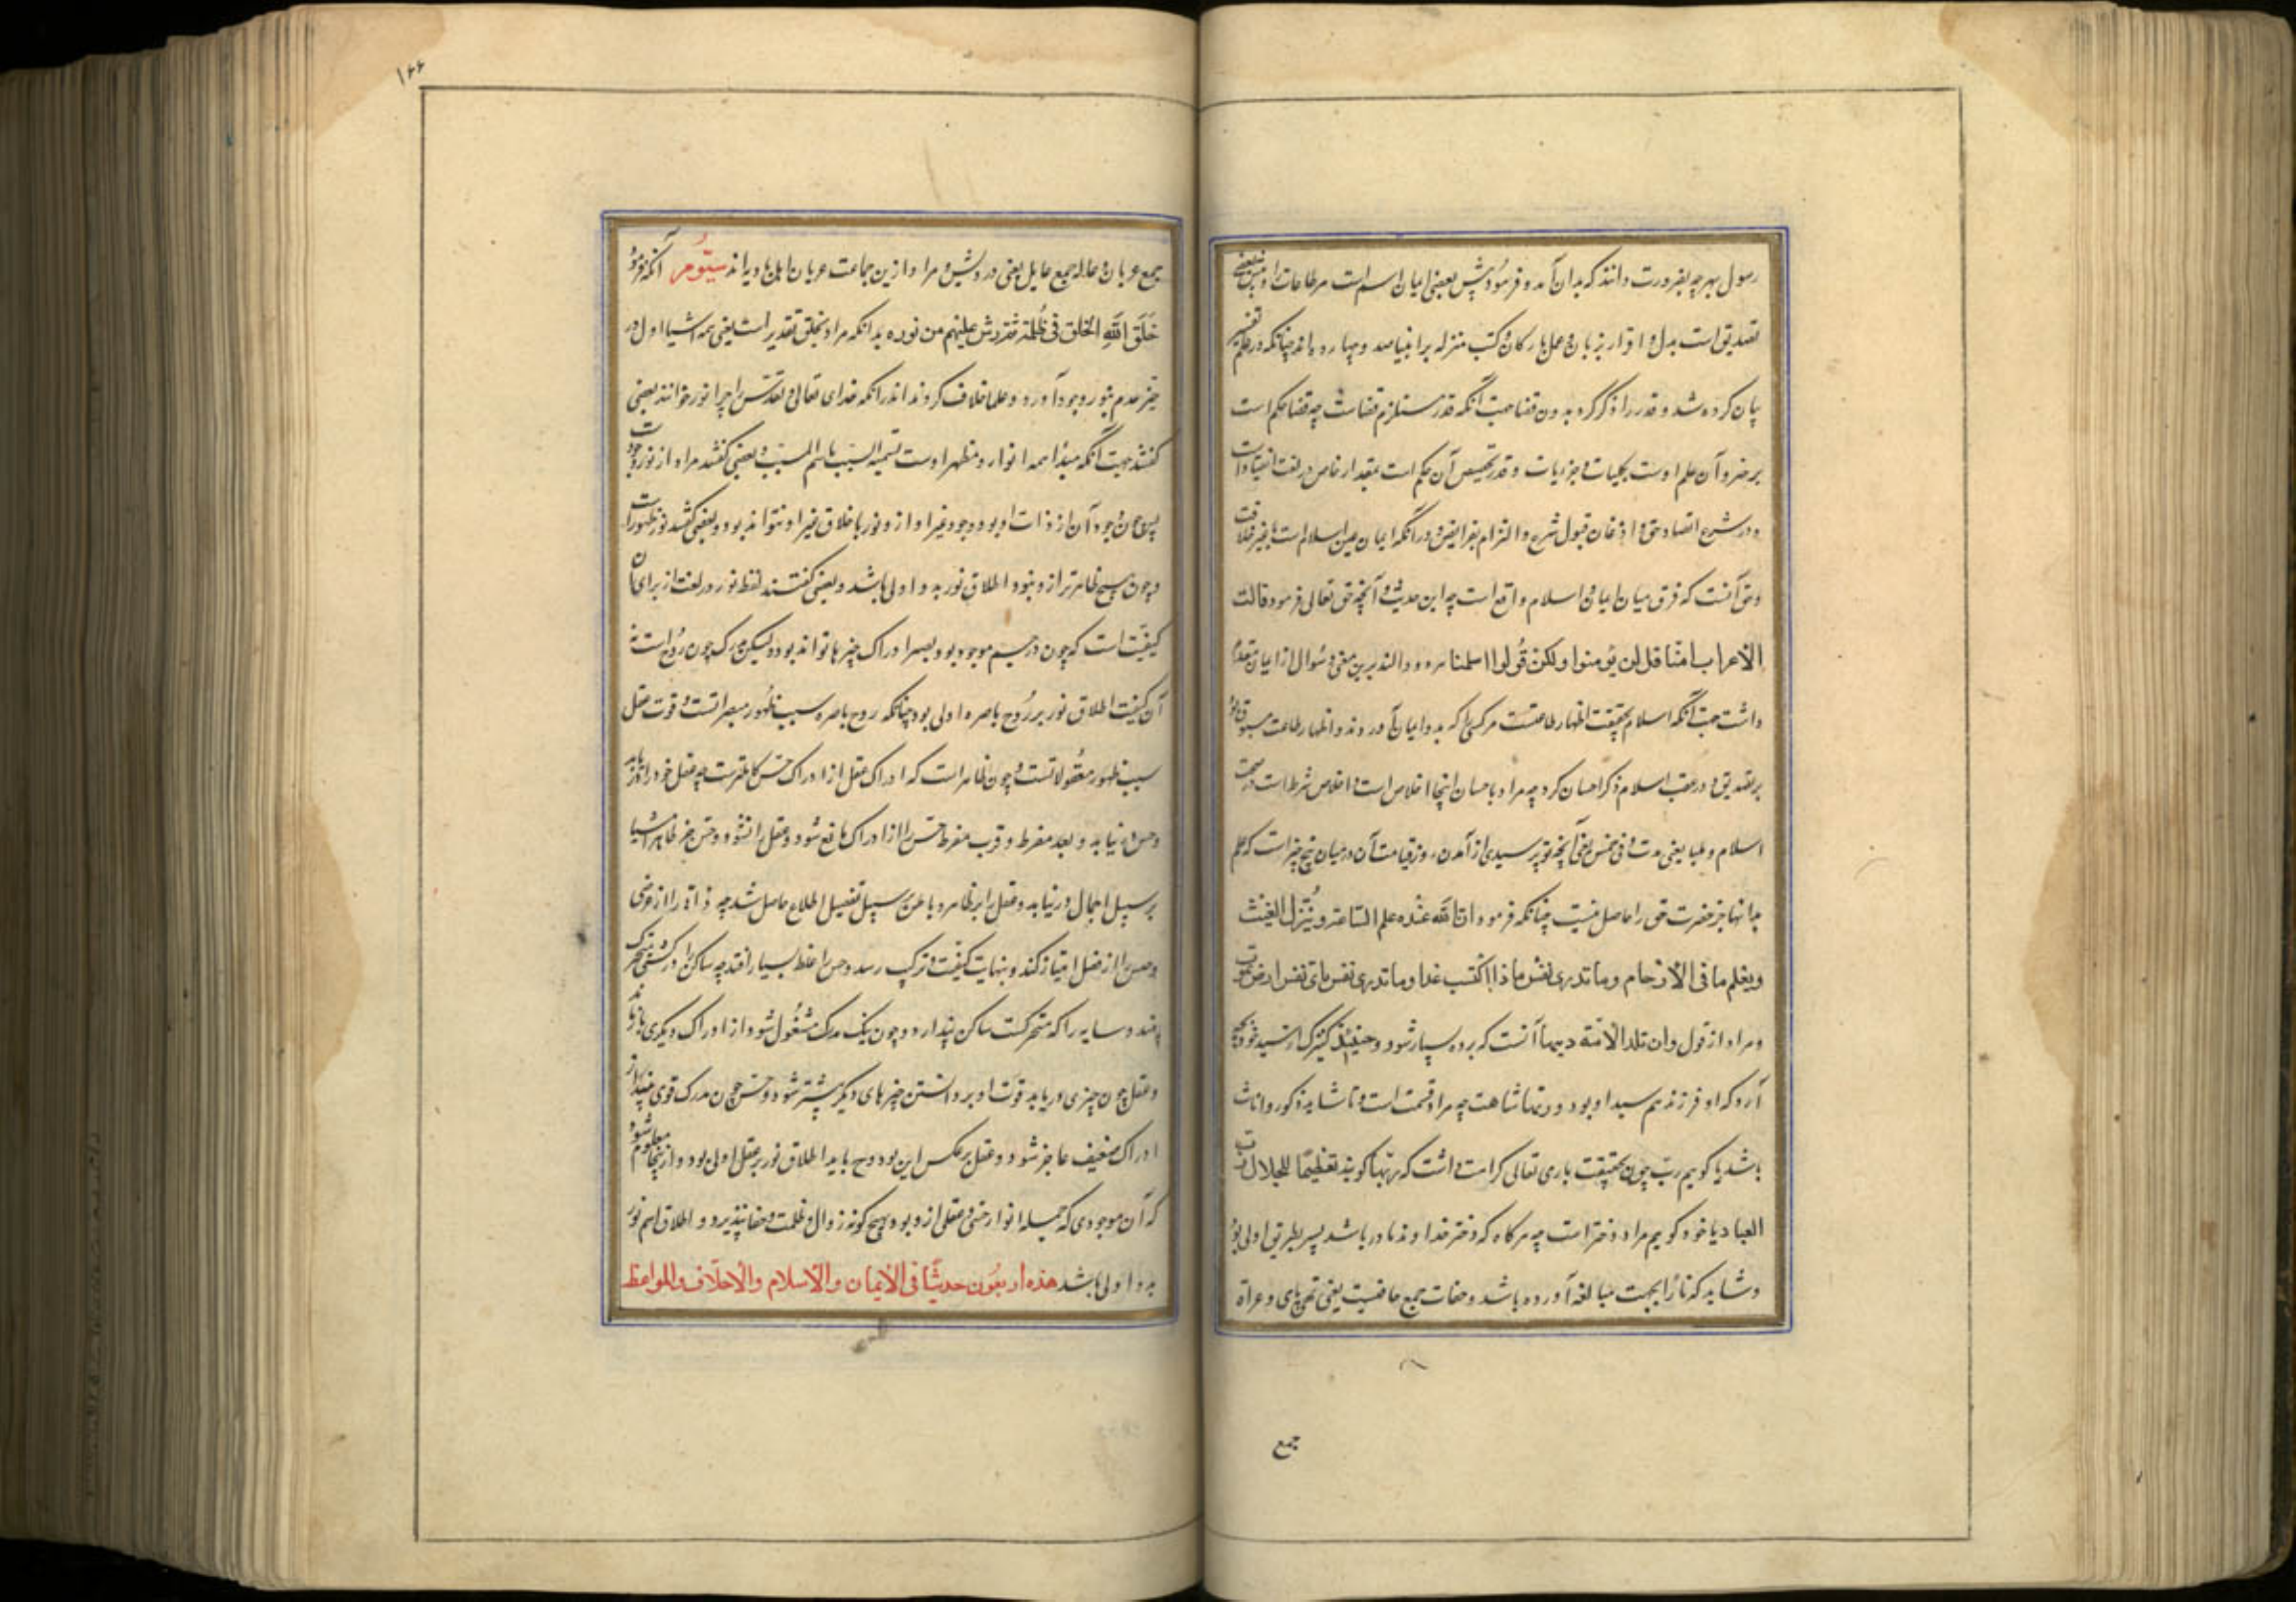 رسول بهر چه بضرورت دانند که بدان آمد و فرمود پیش بعضی ایمان اسم است مر طاعات را و پیش بعضی
تصدیق است بدل و اقرار بزبان و عمل بارکان و کتب منزله بر انبیا صد و چهارده‌اند چنانکه در علم تفسیر
بیان کرده شد و قدر را ذکر کرد بدون قضا جهت آنکه قدر مستلزم قضاست چه قضا حکم است
بر خیر و آن علم اوست بکلیات و جزویات و قدر تخصیص آن حکم است بمقدار خاص در لغت انقیاد است
و در شرع انقیاد حق و اذعان قبول شرع و التزام بفرایض و در آنکه ایمان عین اسلام است یا غیر خلافت
و حق آنست که فرق میان ایمان و اسلام واقع است چه این حدیث و آنچه حق تعالی فرمود قالت
الاعراب امنا قل لن یؤمنوا ولکن قولوا اسلمنا برین معنی و سؤال از ایمان مقدم
داشت جهت آنکه اسلام بحقیقت اظهار طاعتست مر کسی را که بدو ایمان آوردند و اظهار طاعت مسبوق بود
بر تصدیق و در عقب اسلام ذکر احسان کرد چه مراد باحسان اینجا اخلاص است و اخلاص شرط است در صحت
اسلام و فی خمس یعنی آنچه تو پرسیدی از آمدن روز قیامت آن در میان پنج چیز است که علم
بدانها جز حضرت حق را حاصل نیست چنانکه فرمود ان الله عنده علم الساعة وینزل الغیث
ویعلم ما فی الارحام وما تدری نفس ماذا اکتسب غدا وما تدری نفس بای نفس ارض تموت
و مراد از قول وان تلد الامة ربها آنست که برده بسیار شود و حینئذ کنیزک از سید خود بچه
آرد که او فرزند هم سید او بود و ربتها چه مراد است تا شاید ذکور و اناث
باشد یا گوییم رب چون بحقیقت باری تعالی کرامت داشت که ربها گویند تعظیما للجلال رب
العباد یا خود گوییم مراد دختر است چه هر گاه که دختر خداوند مادر باشد پسر بطریق اولی بود
و شاید که تا را بجهت مبالغه آورده باشد و حفات جمع حافیست یعنی تهی‌پای و عراة
جمع
۱۶۶
جمع عریان و عاله جمع عایل یعنی درویش و مراد ازین جماعت عریان اهل بادیه‌اند سیوم آنکه فرمود
خلق الله الخلق فی ظلمة ثم رش علیهم من نوره بدانکه مراد بخلق تقدیر است یعنی همه اشیا اول در
حیز عدم بنور وجود آورد و علما خلاف کردند اندر آنکه خدای تعالی و تقدس را چرا نور خوانند بعضی
گفتند جهت آنکه مبدأ همه انوار و مظهر اوست تسمیه السبب باسم المسبب و بعضی گفتند مراد از نور وجود است
پس چون وجود آن از ذات او بود و وجود غیر او از و نور باخلاق غیر او نتواند بود و بعضی گفتند نور ظهور است
و چون هیچ ظاهرتر ازو نبود اطلاق نور بدو اولی باشد و بعضی گفتند لفظ نور در لغت از برای آن
کیفیت است که چون در جسم موجود بود بصر ادراک چیزها تواند بود ولیکن مدرک چون روح است نه
آن کیفیت اطلاق نور بر روح باصره اولی بود چنانکه روح باصره سبب ظهور مبصراتست و قوت عقل
سبب ظهور معقولاتست و چون ظاهر است که ادراک عقل از ادراک حس کاملترست چه عقل خود را دریابد
و حس درنیابد و بعد مفرط و قرب مفرط حس را از ادراک مانع شود و عقل را نشود و حس جز ظاهر اشیا
بر سبیل اجمال درنیابد و عقل را بر ظاهر و باطن بر سبیل تفصیل اطلاع حاصل شد چه ذاتی را از عرضی
و جنس را از فصل امتیاز کند و بنهایت کیفیت و ترکیب رسد و حس را غلط بسیار افتد چه ساکن را در کشتی متحرک
بیند و سایه را که متحرکست ساکن پندارد و چون بیک مدرک مشغول شود از ادراک دیگری بازماند
و عقل چون چیزی دریابد قوت او بر دانستن چیزهای دیگر بیشتر شود و حس چون مدرک قوی بیند از
ادراک ضعیف عاجز شود و عقل برعکس این بود و ح باید اطلاق نور بر عقل اولی بود و ازینجا معلوم شود
که آن موجودی که جمله انوار حسی و عقلی ازو بود و بهیچ گونه زوال و ظلمت و خفا نپذیرد و اطلاق اسم نور
بدو اولی باشد هذه اربعون حدیثا فی الایمان والاسلام والاخلاق والمواعظ